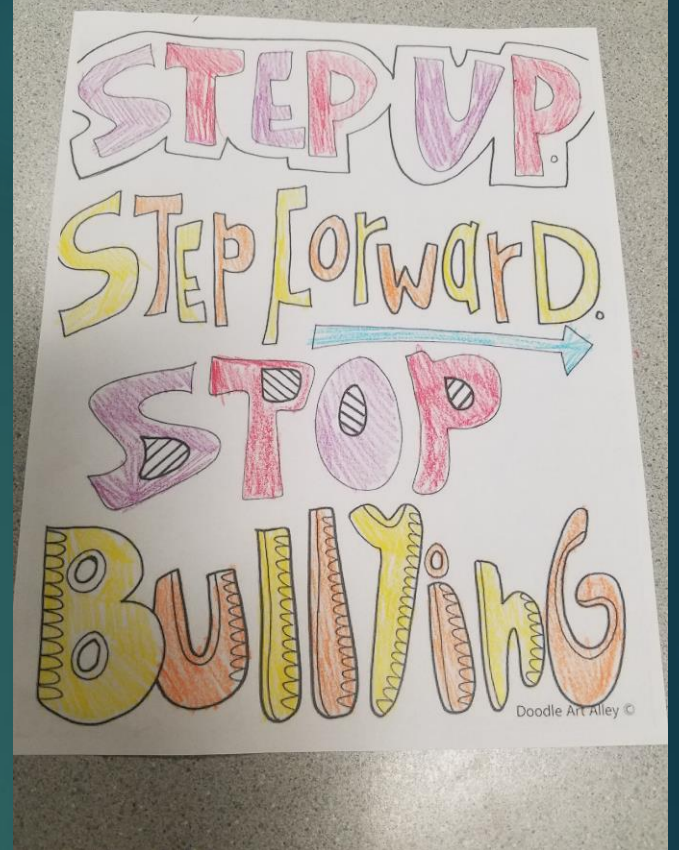 STEP UP.
STEP Forward.
STOP
BullYinG
Doodle Art Alley ©